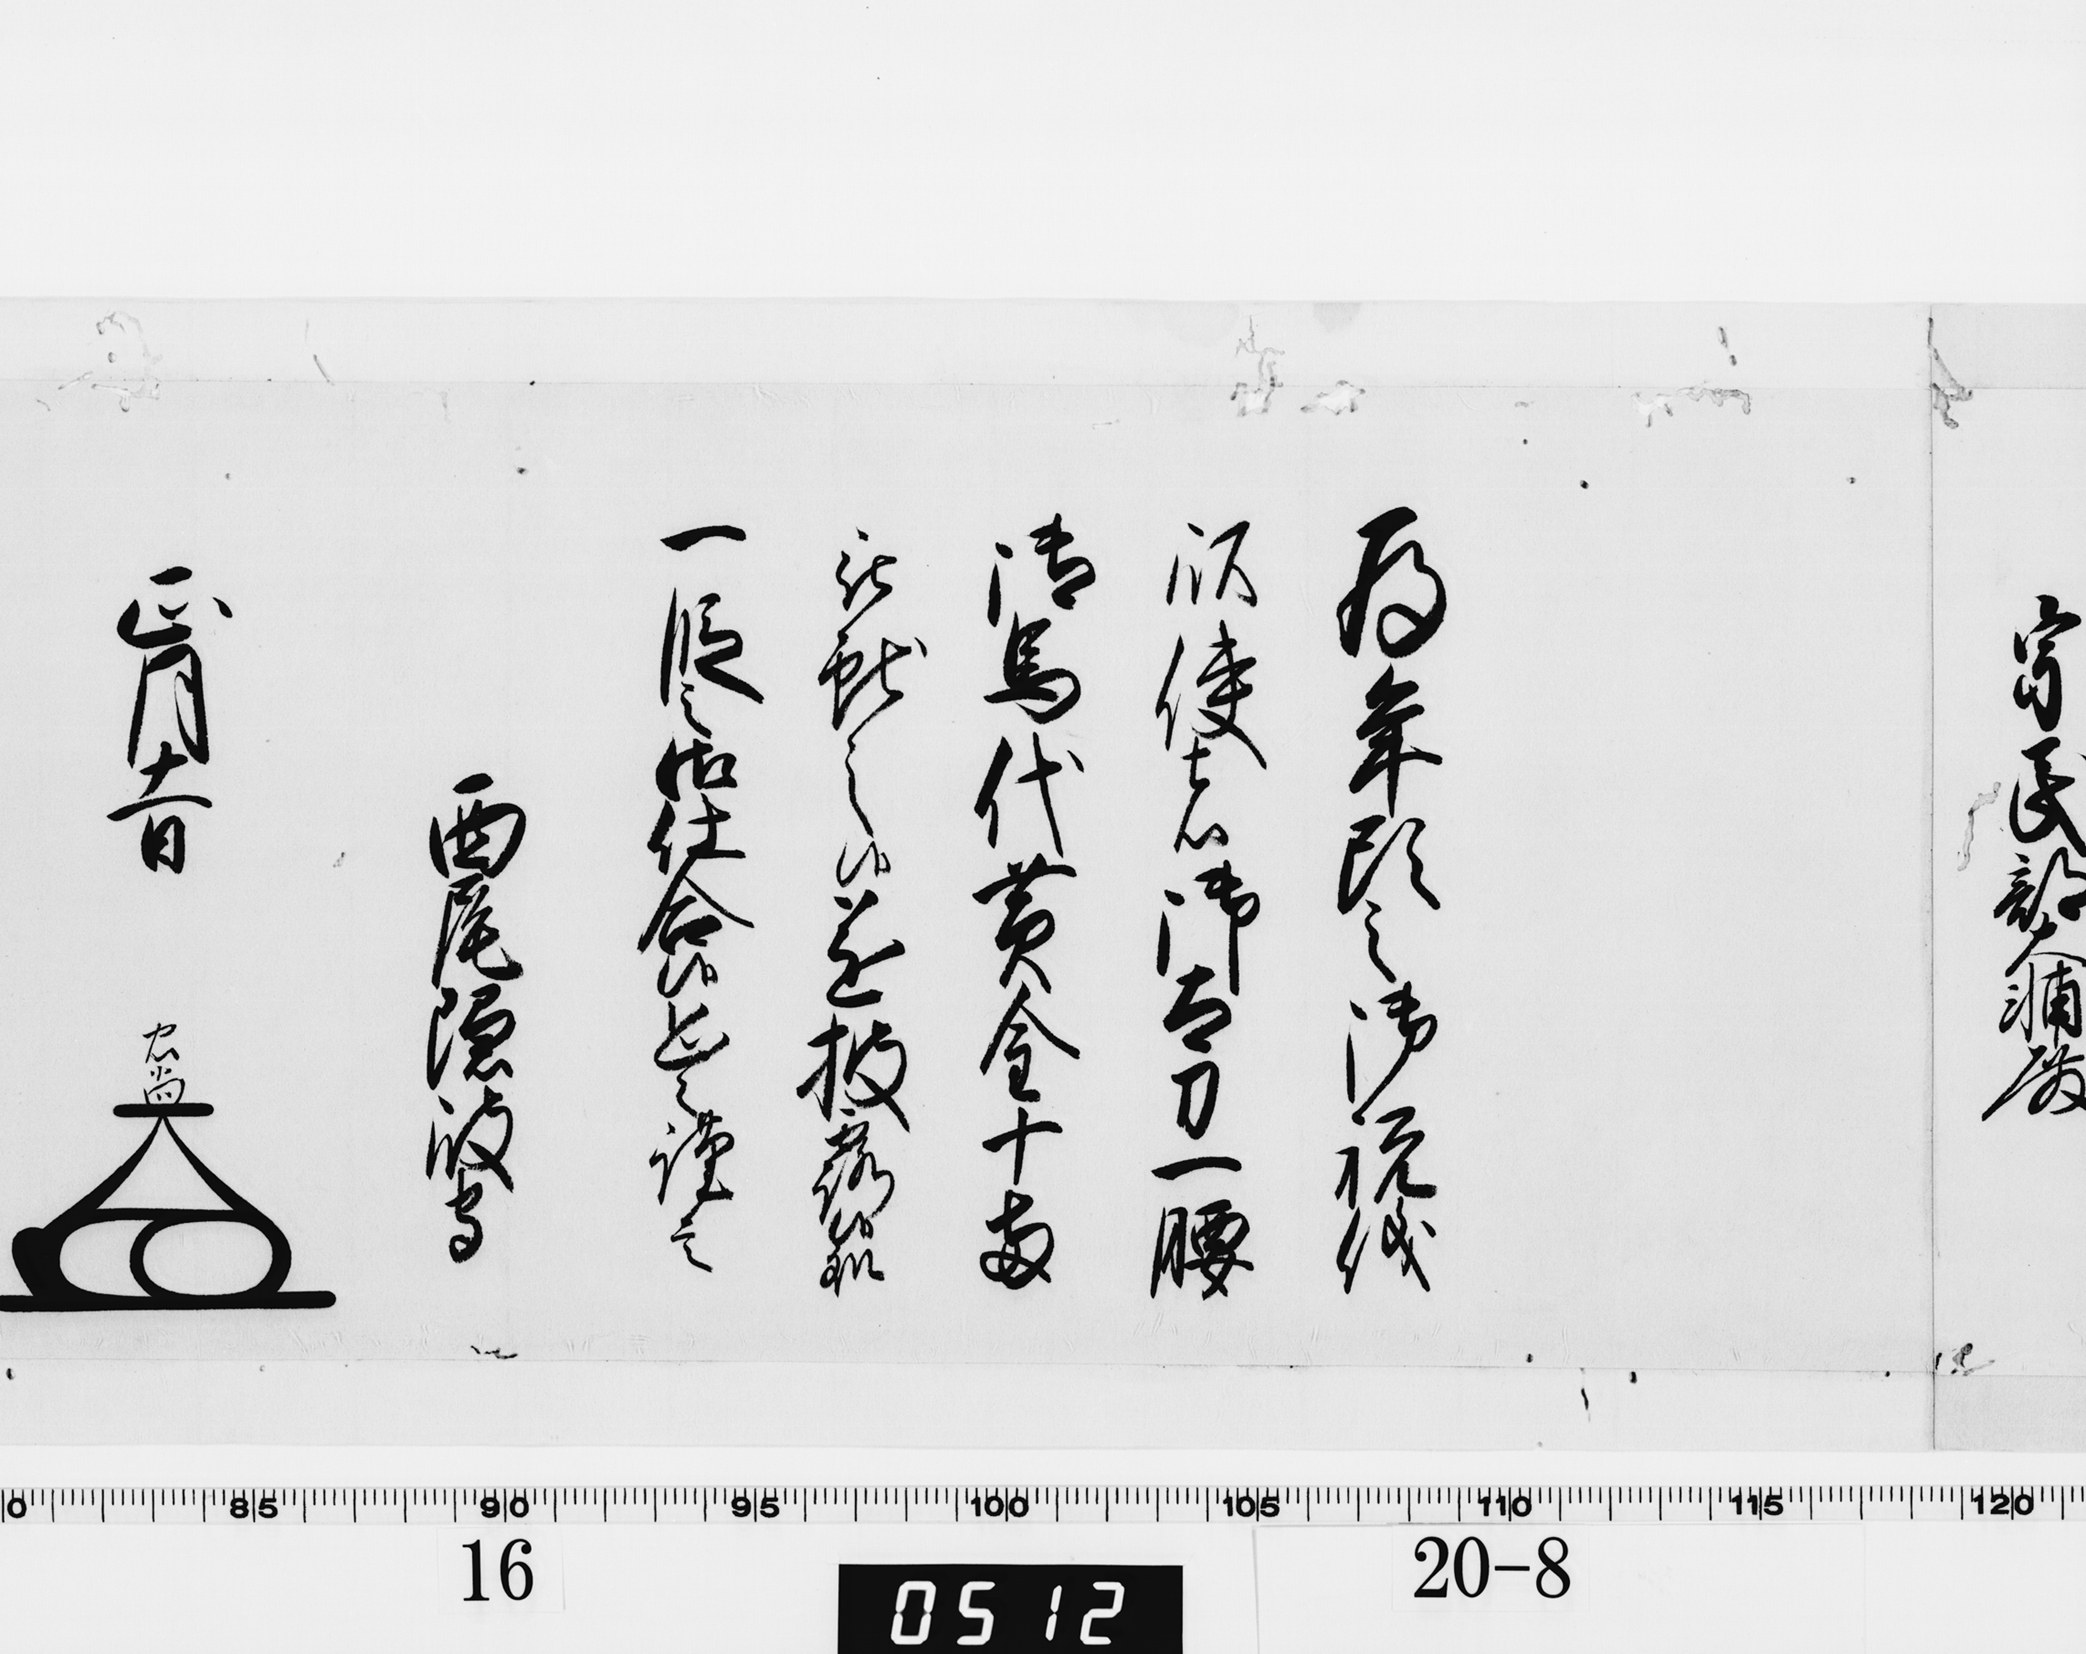 宗民部大輔殿
為年頭之御祝儀
使者御太刀一腰
御馬代黄金十両
被献之候遂披露候処
一段之御仕合候恐々謹言
西尾隠岐守
正月十一日
忠尚
0 85 90 95 100 105 110 115 120
16
20-8
0512